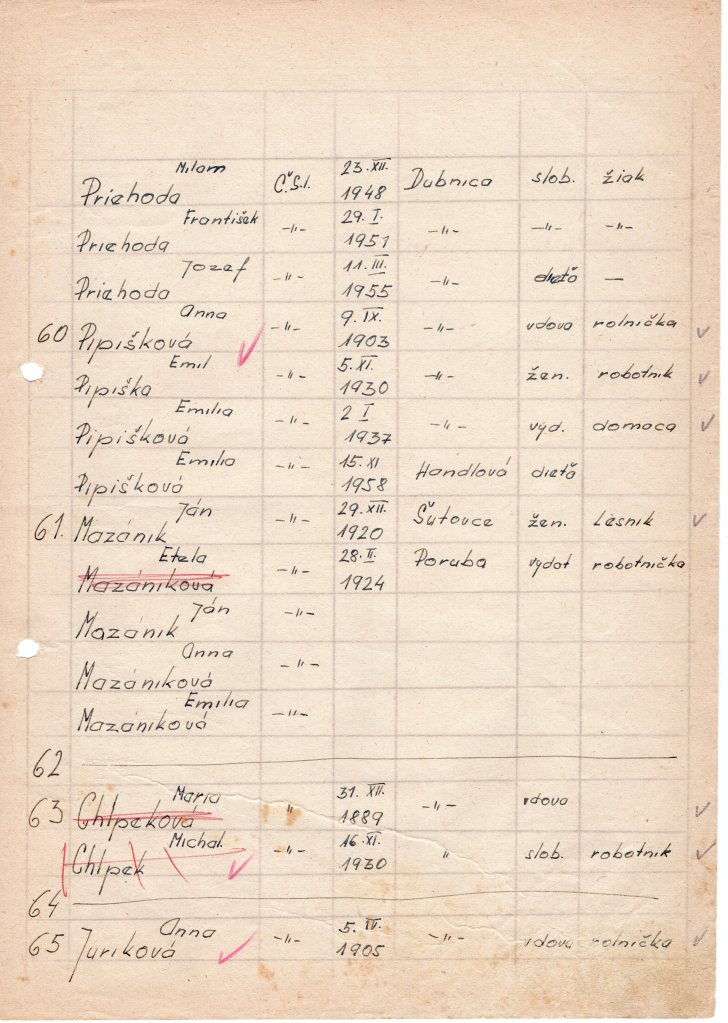 Milan
Priehoda Č.S.l. 23. XII. 1948 Dubnica slob. žiak
František
Priehoda -"- 29. I. 1951 -"- -"- -"-
Jozef
Priehoda -"- 11. III. 1955 -"- dieťa —
Anna
60 Pipišková -"- 9. IX. 1903 -"- vdova rolnička
Emil
Pipiška -"- 5. XI. 1930 -"- žen. robotnik
Emilia
Pipišková -"- 2 I 1937 -"- vyd. domaca
Emilia
Pipišková -"- 15. XI 1958 Handlová dieťa
Ján
61. Mazánik -"- 29. XII. 1920 Šutovce žen. Lesnik
Etela
Mazániková -"- 28. II. 1924 Poruba vydat robotnička
Ján
Mazánik -"-
Anna
Mazániková -"-
Emilia
Mazániková -"-
62
Maria
63 Chlpeková " 31. XII. 1889 -"- vdova
Michal
Chlpek -"- 16. XI. 1930 " slob. robotnik
64
Anna
65 Juriková -"- 5. IV. 1905 -"- vdova rolnička